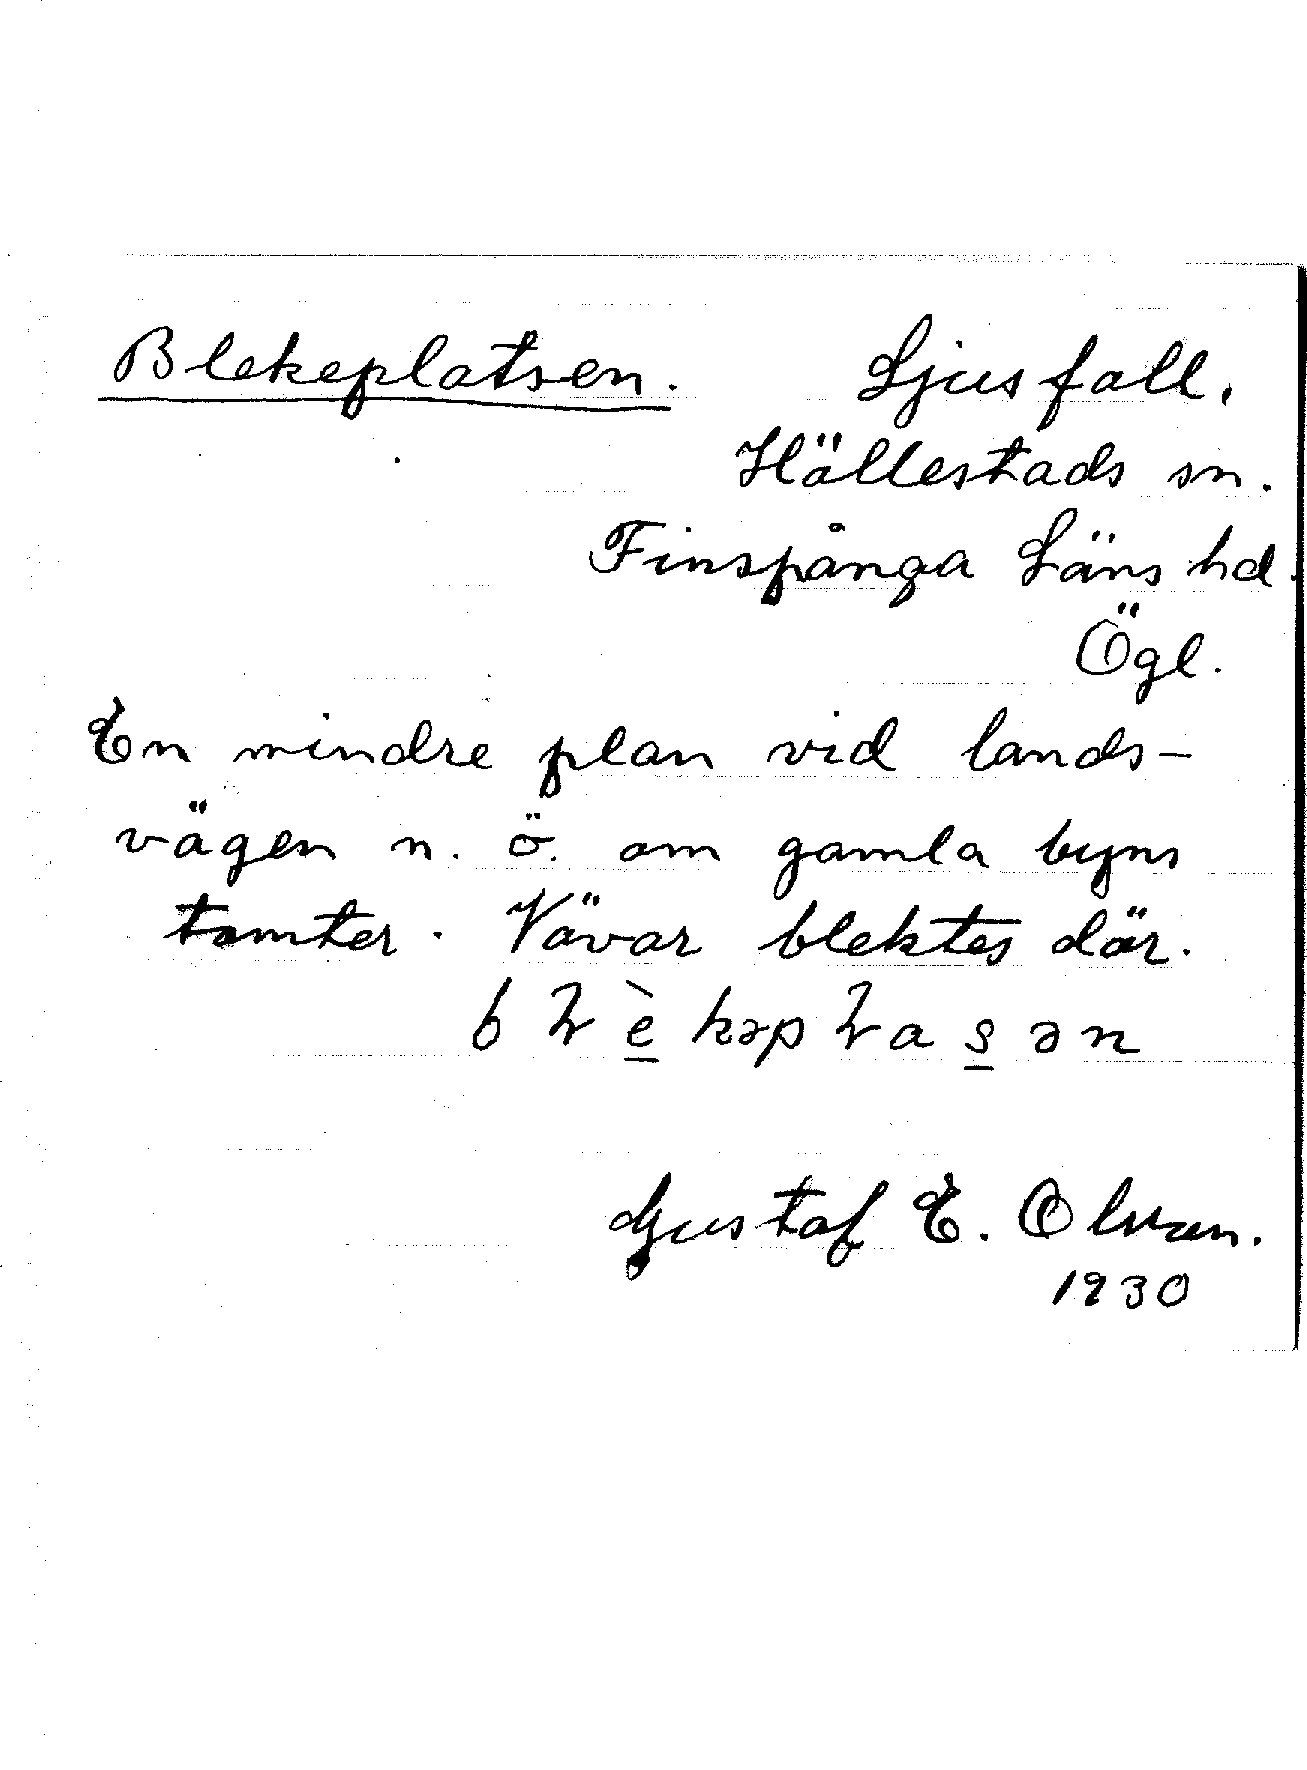 Blekeplatsen. Ljusfall.
Hällestads sn.
Finspånga Läns hd.
Ögl.
En mindre plan vid lands-
vägen n. ö. om gamla byns
tomter. Vävar blektes där.
Gustaf E. Olsson.
1930